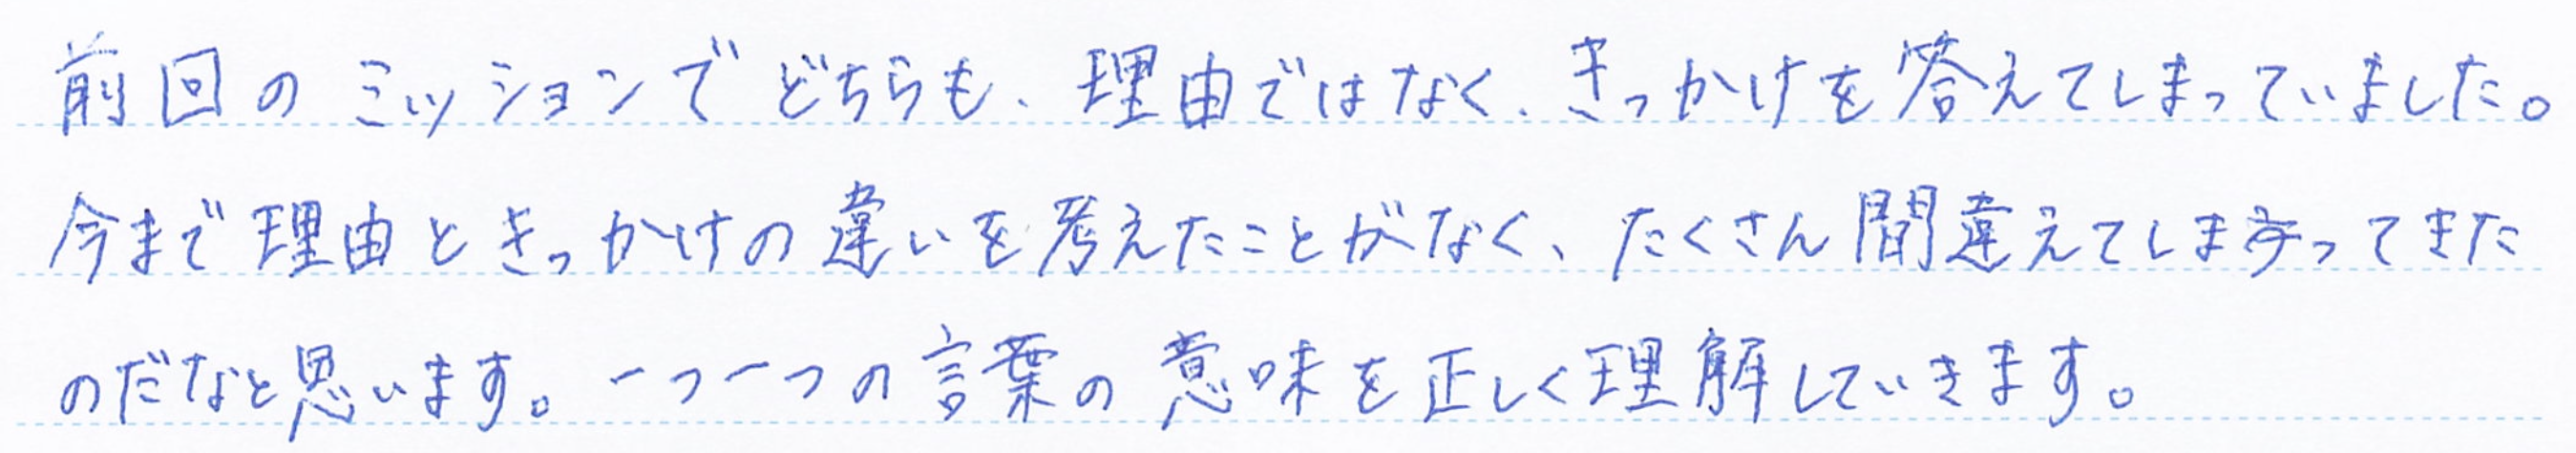 前回のミッションでどちらも、理由ではなく、きっかけを答えてしまっていました。
今まで理由ときっかけの違いを考えたことがなく、たくさん間違えてしまってきた
のだなと思います。一つ一つの言葉の意味を正しく理解していきます。